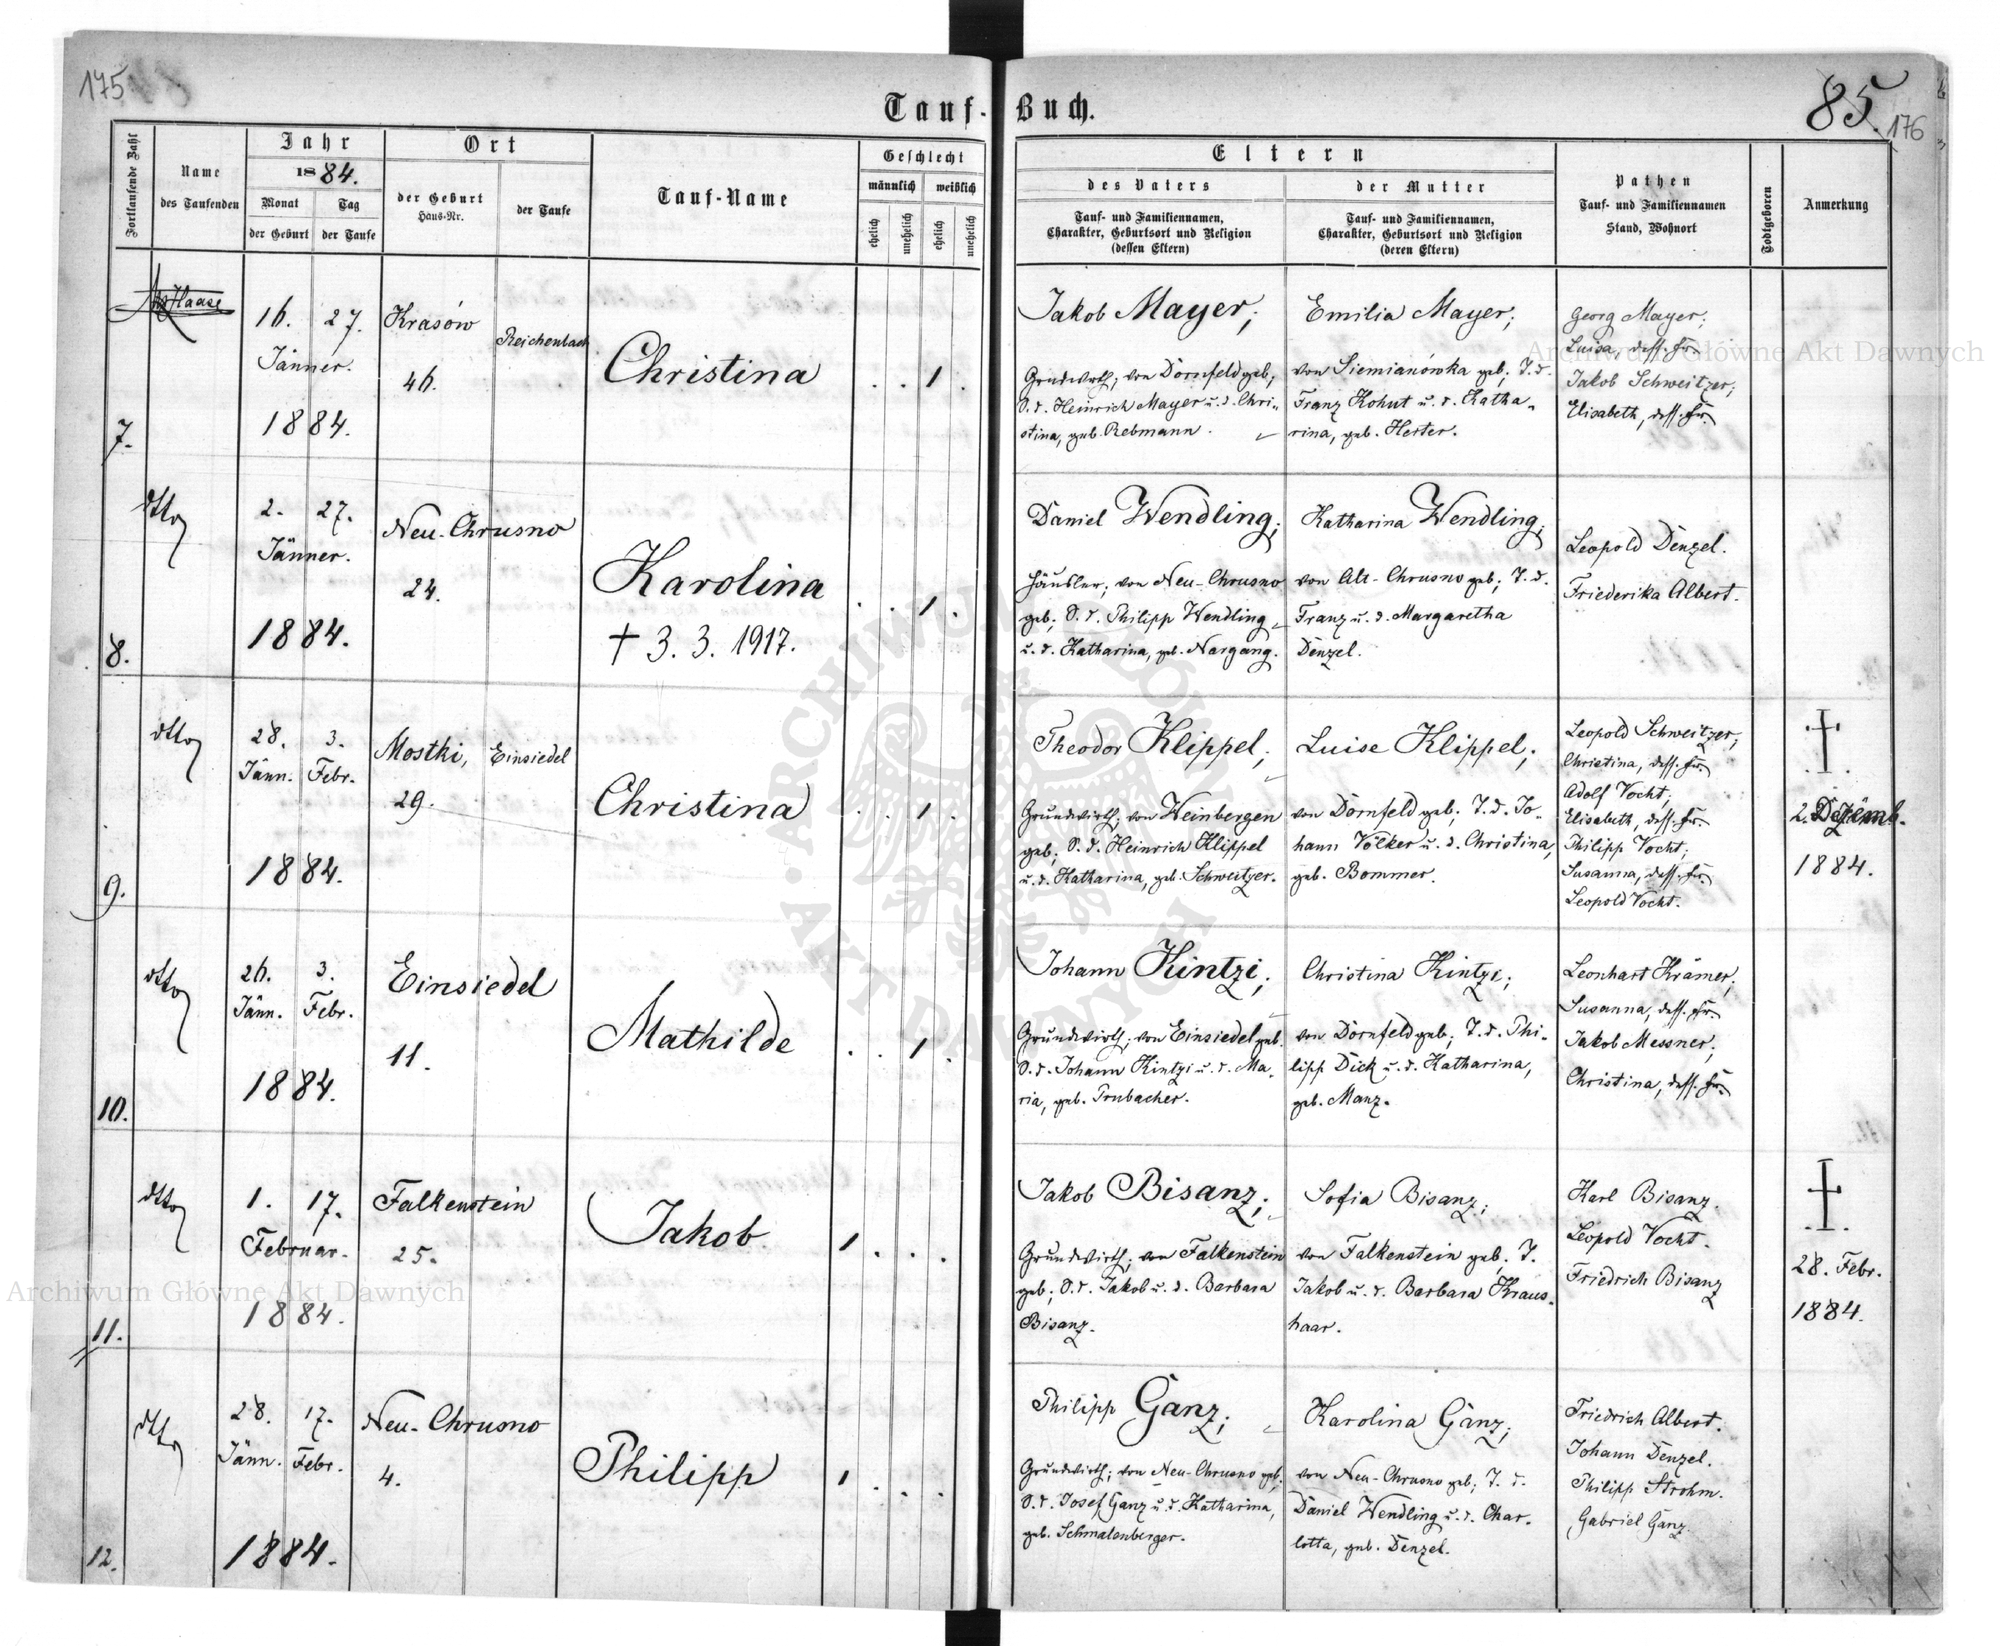 175
Tauf-Buch.
85.
176
Fortlaufende Zahl
Name
des Taufenden
Jahr
1884.
Monat
Tag
der Geburt
der Taufe
Ort
der Geburt
Haus-Nr.
der Taufe
Tauf-Name
Geschlecht
männlich
weiblich
ehelich
unehelich
ehelich
unehelich
Eltern
des Vaters
Tauf- und Familiennamen,
Charakter, Geburtsort und Religion
(dessen Eltern)
der Mutter
Tauf- und Familiennamen,
Charakter, Geburtsort und Religion
(deren Eltern)
Pathen
Tauf- und Familiennamen
Stand, Wohnort
Todtgeboren
Anmerkung
7.
Haase
16. 27.
Jänner.
1884.
Krasów
46.
Reichenbach
Christina
. . 1 .
Jakob Mayer;
Grudwrth; von Dornfeld geb;
S. d. Heinrich Mayer u. d. Chri-
stina, geb. Rebmann.
Emilia Mayer;
von Siemianówka geb; T. d.
Franz Kohut u. d. Katha-
rina, geb. Herter.
Georg Mayer;
Luisa, dess. Fr.
Jakob Schweitzer;
Elisabeth, dess. Fr.
8.
dtto
2. 27.
Jänner.
1884.
Neu-Chrusno
24.
Karolina
† 3. 3. 1917.
. . 1 .
Daniel Wendling;
Häusler; von Neu-Chrusno
geb; S. d. Philipp Wendling
u. d. Katharina, geb. Nargang.
Katharina Wendling;
von Alt-Chrusno geb; T. d.
Franz u. d. Margaretha
Denzel.
Leopold Denzel.
Friederika Albert.
9.
dtto
28. 3.
Jänn. Febr.
1884.
Mostki,
29.
Einsiedel
Christina
. . 1 .
Theodor Klippel;
Grundwirth; von Weinbergen
geb; S. d. Heinrich Klippel
u. d. Katharina, geb. Schweitzer.
Luise Klippel;
von Dornfeld geb; T. d. Jo-
hann Völker u. d. Christina,
geb. Bommer.
Leopold Schweitzer;
Christina, dess. Fr.
Adolf Vocht;
Elisabeth, dess. Fr.
Philipp Vocht;
Susanna, dess. Fr.
Leopold Vocht.
2. Dezemb.
1884.
10.
dtto
26. 3.
Jänn. Febr.
1884.
Einsiedel
11.
Mathilde
. . 1 .
Johann Kintzi;
Grundwirth; von Einsiedel geb.
S. d. Johann Kintzi u. d. Ma-
ria, geb. Trubacher.
Christina Kintzi;
von Dornfeld geb; T. d. Phi-
lipp Dick u. d. Katharina,
geb. Manz.
Leonhart Krämer;
Susanna, dess. Fr.
Jakob Messner;
Christina, dess. Fr.
11.
dtto
1. 17.
Februar.
1884.
Falkenstein
25.
Jakob
1 . . .
Jakob Bisanz;
Grundwirth; von Falkenstein
geb; S. d. Jakob u. d. Barbara
Bisanz.
Sofia Bisanz;
von Falkenstein geb; T.
Jakob u. d. Barbara Kraus-
haar.
Karl Bisanz
Leopold Vocht.
Friedrich Bisanz
28. Febr.
1884.
12.
dtto
28. 17.
Jänn. Febr.
1884.
Neu-Chrusno
4.
Philipp
1 . . .
Philipp Ganz;
Grundwirth; von Neu-Chrusno geb;
S. d. Josef Ganz u. d. Katharina,
geb. Schmalenberger.
Karolina Ganz;
von Neu-Chrusno geb; T. d.
Daniel Wendling u. d. Char-
lotta, geb. Denzel.
Friedrich Albert.
Johann Denzel.
Philipp Strohm.
Gabriel Ganz.
Archiwum Główne Akt Dawnych
Archiwum Główne Akt Dawnych
ARCHIWUM GŁÓWNE AKT DAWNYCH